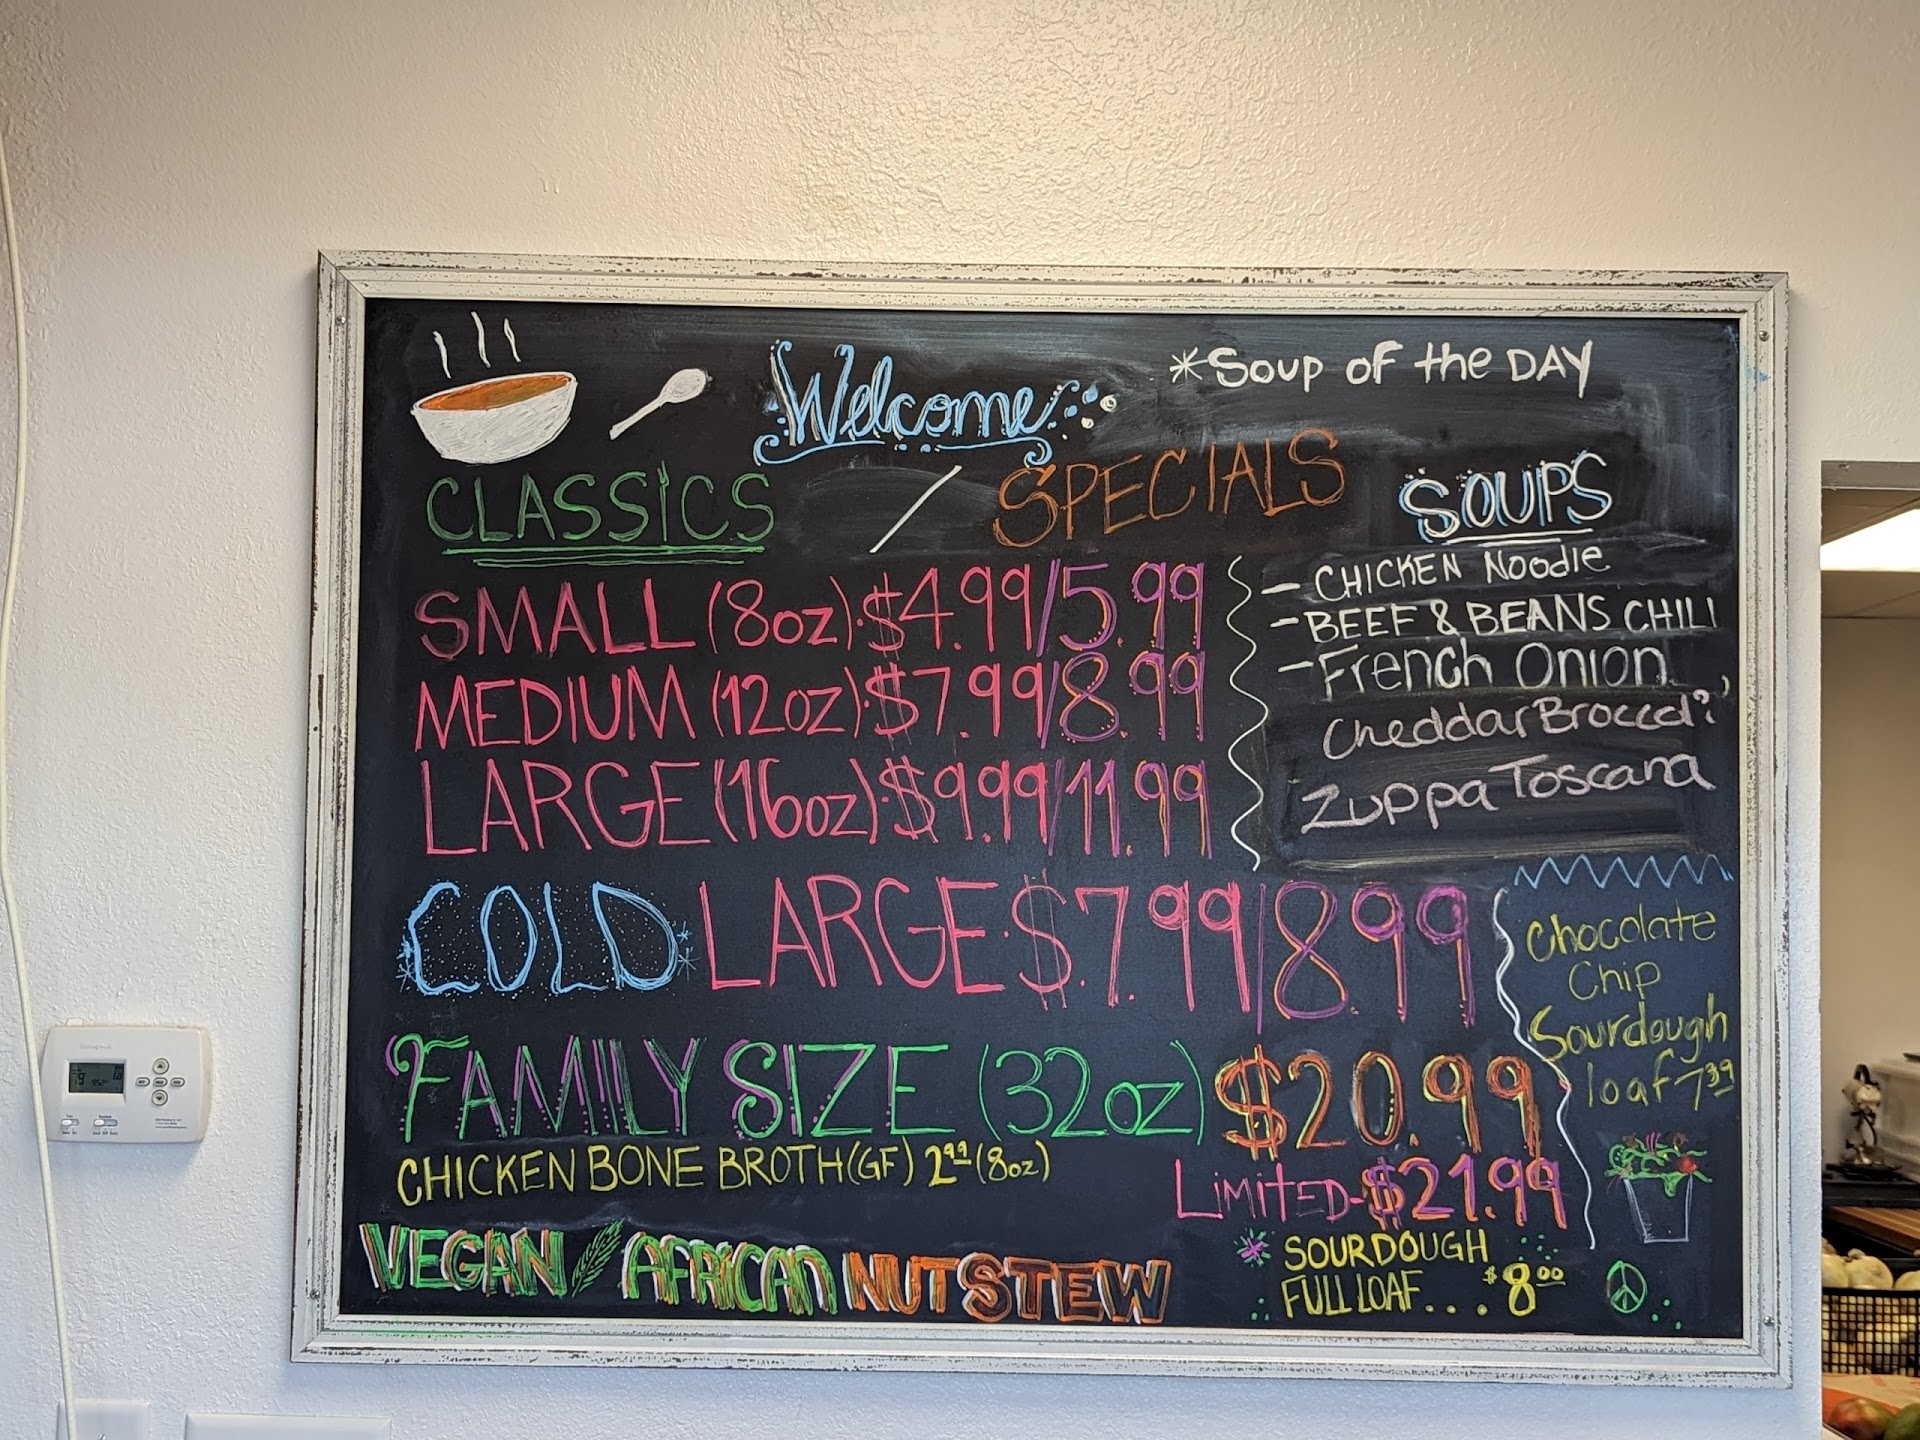 Welcome
*Soup of the DAY
CLASSICS / SPECIALS
SMALL (8oz).$4.99/5.99
MEDIUM (12oz).$7.99/8.99
LARGE (16oz).$9.99/11.99
SOUPS
- CHICKEN NOODLE
- BEEF & BEANS CHILI
- French Onion
Cheddar Broccoli
Zuppa Toscana
COLD LARGE.$7.99/8.99
FAMILY SIZE (32oz) $20.99
LIMITED-$21.99
CHICKEN BONE BROTH (GF) 2.99 (8oz)
VEGAN AFRICAN NUT STEW
Chocolate
Chip
Sourdough
loaf 7 39
SOURDOUGH
FULL LOAF... $8 00